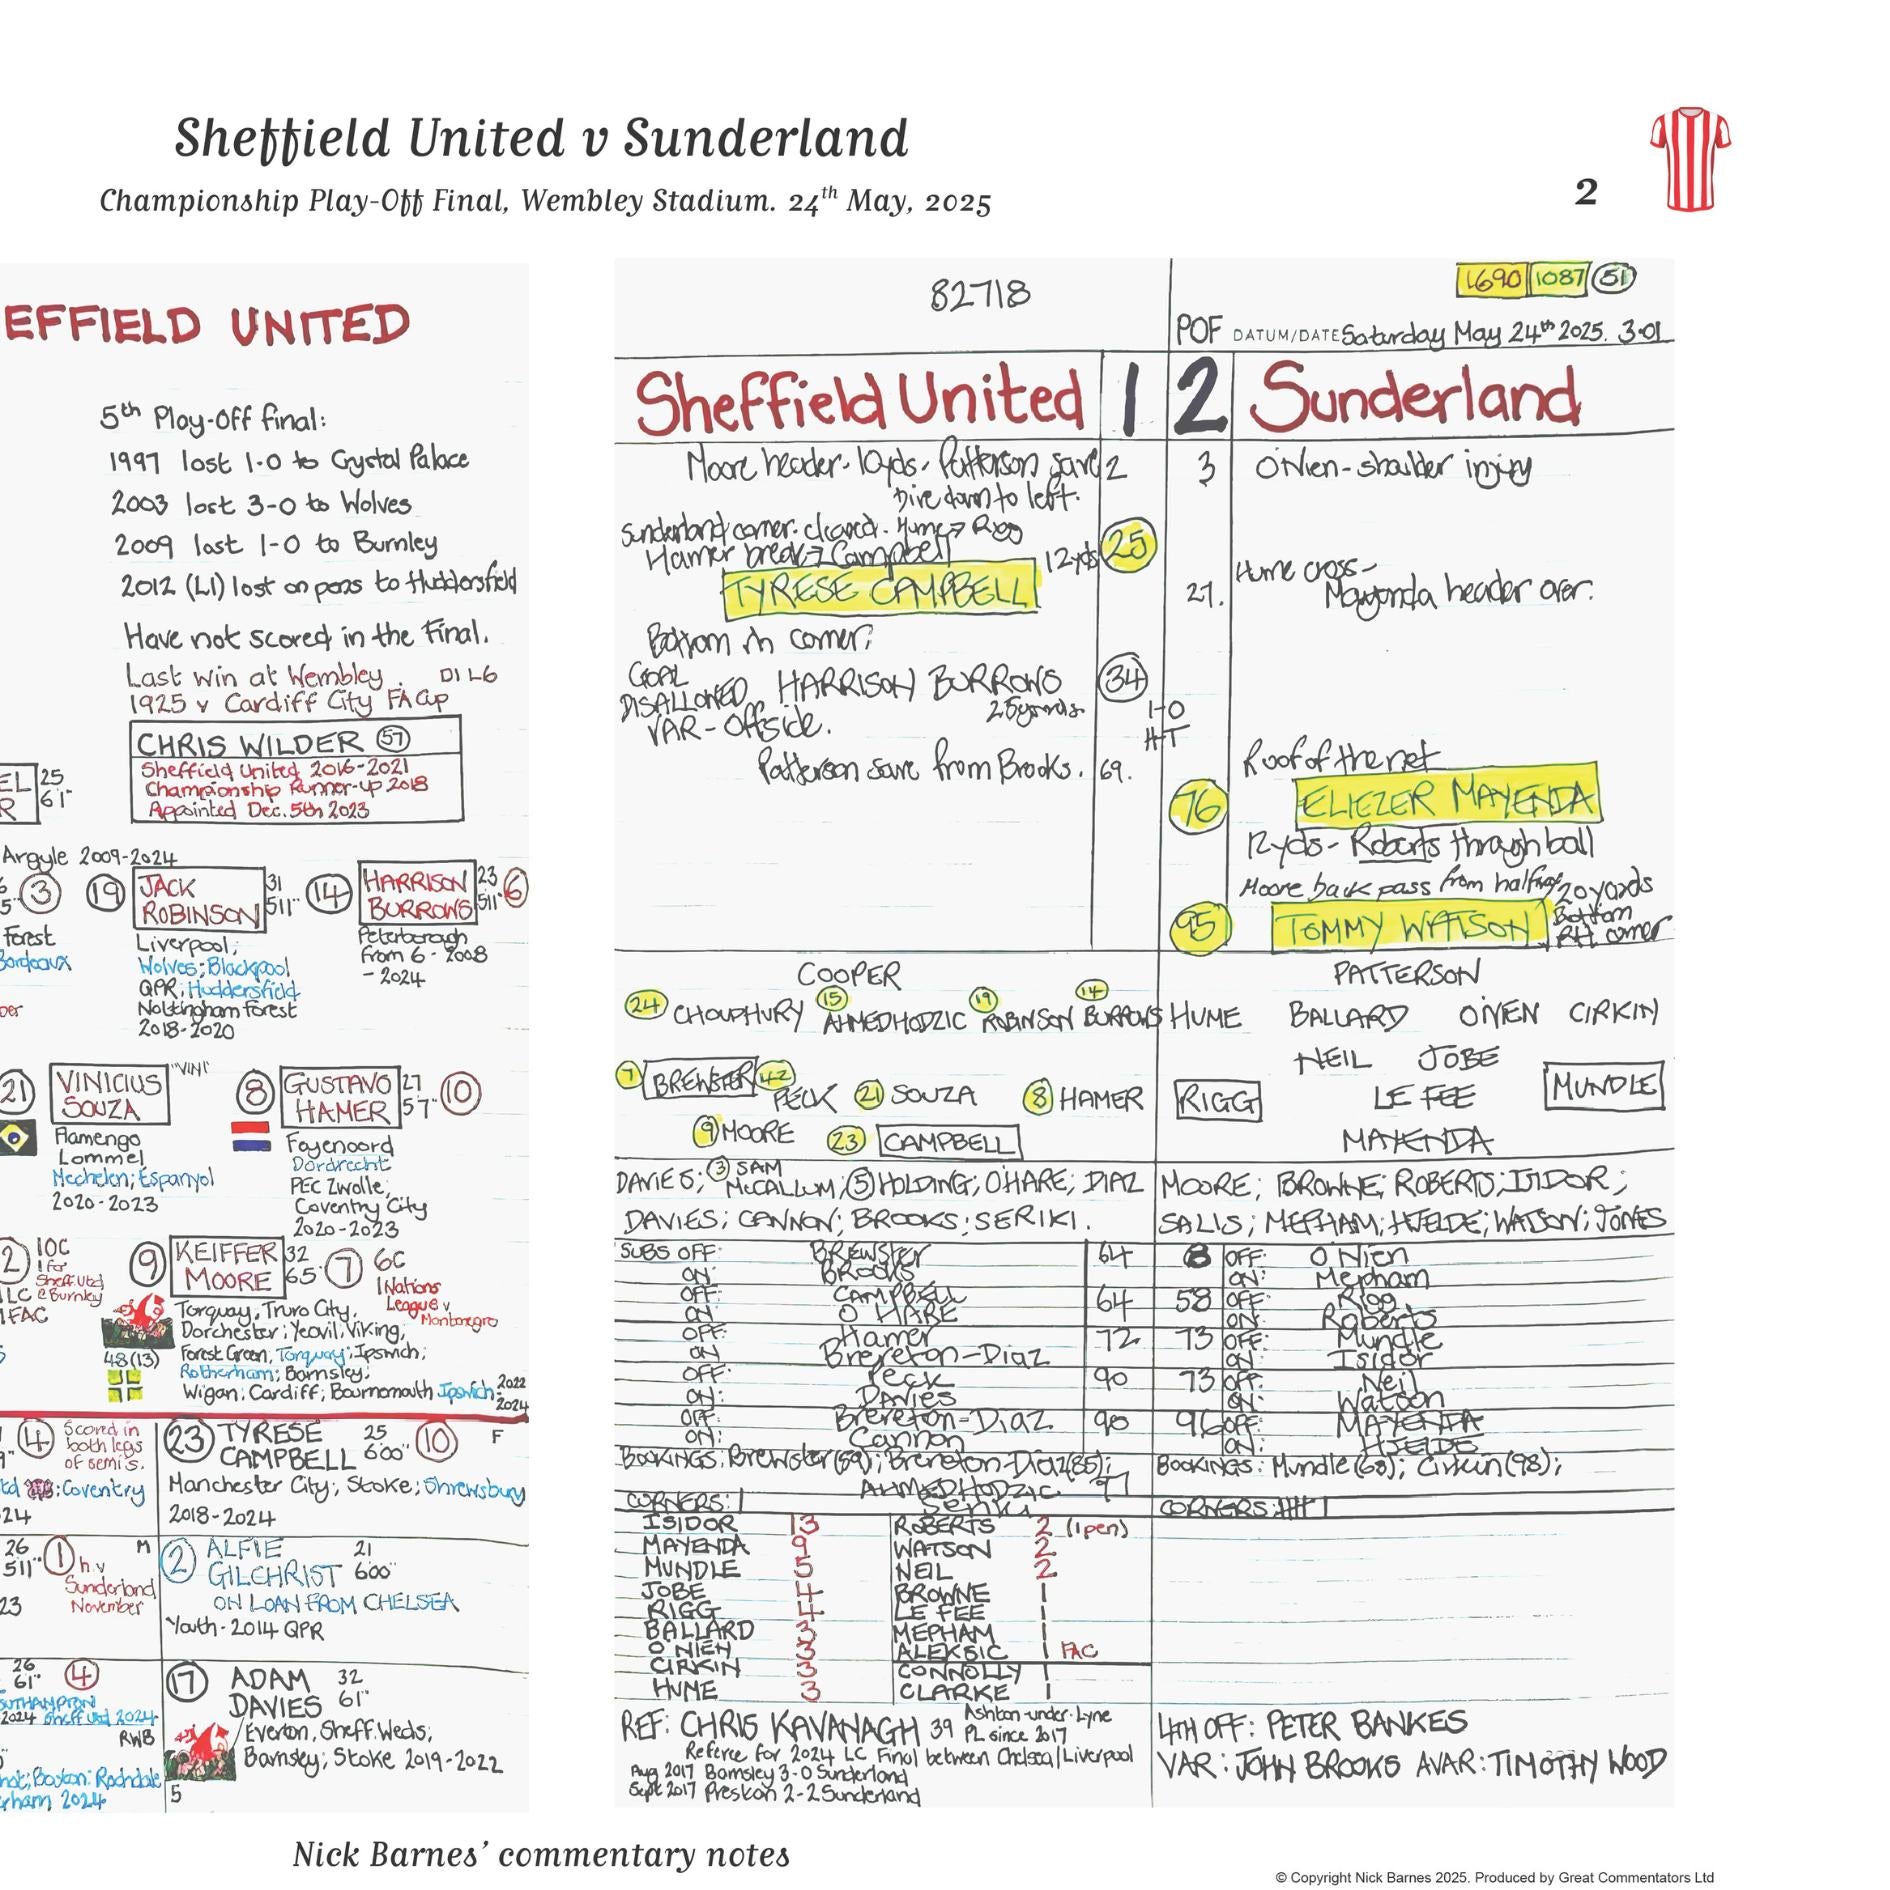 Sheffield United v Sunderland
Championship Play-Off Final, Wembley Stadium. 24th May, 2025
2
EFFIELD UNITED
5th Play-Off final:
1997 lost 1-0 to Crystal Palace
2003 lost 3-0 to Wolves
2009 lost 1-0 to Burnley
2012 (L1) lost on pens to Huddersfield
Have not scored in the Final.
Last win at Wembley. D1 L6
1925 v Cardiff City FA Cup
CHRIS WILDER 57
Sheffield United 2016-2021
Championship Runner-up 2018
Appointed Dec. 5th 2023
EL 25
R 6'1"
Argyle 2009-2024
3
19 JACK ROBINSON 31 5'11"
14 HARRISON BURROWS 23 5'11" 6
Forest
Bordeaux
Liverpool;
Wolves; Blackpool
QPR; Huddersfield
Nottingham Forest
2018-2020
Peterborough
from 6 - 2008
- 2024
21 VINICIUS SOUZA "VINI"
8 GUSTAVO HAMER 27 5'7" 10
Flamengo
Lommel
Mechelen; Espanyol
2020-2023
Feyenoord
Dordrecht
PEC Zwolle;
Coventry City
2020-2023
2 10C
1 for
Sheff. Utd
LC @ Burnley
1FAC
9 KEIFFER MOORE 32 6'5" 7 6C
1 Nations
League v
Montenegro
48(13)
Torquay, Truro City,
Dorchester; Yeovil, Viking,
Forest Green, Torquay; Ipswich;
Rotherham; Barnsley;
Wigan; Cardiff; Bournemouth Ipswich: 2022
2024
4 Scored in
both legs
of semis.
23 TYRESE CAMPBELL 25 6'00" 10 F
td ; Coventry
24
Manchester City; Stoke; Shrewsbury
2018-2024
26
5'11" 1 M
h.v
Sunderland
November
23
2 ALFIE GILCHRIST 21 6'00"
ON LOAN FROM CHELSEA
Youth-2014 QPR
26
6'1" 4
SOUTHAMPTON
2024 Sheff Utd 2024
RWB
17 ADAM DAVIES 32 6'1"
Everton, Sheff. Weds;
Barnsley; Stoke 2019-2022
Boston; Rochdale
rham 2024
5
82718
1690 1087 51
POF DATUM/DATE Saturday May 24th 2025. 3.01
Sheffield United 1 2 Sunderland
Moore header - 10yds - Patterson save 2
Dive down to left.
3 O'Nien - shoulder injury
Sunderland corner. cleared. Hume → Rigg
Hamer break → Campbell 12yds 25
TYRESE CAMPBELL
Bottom rh corner.
27. Hume cross -
Mayenda header over.
GOAL DISALLOWED HARRISON BURROWS 34
25 yards
VAR - Offside.
1-0
H-T
Patterson save from Brooks. 69.
Roof of the net
76 ELIEZER MAYENDA
12yds - Roberts through ball
Moore back pass from halfway 20 yards
95 TOMMY WATSON Bottom
RH corner
COOPER
24 CHOUDHURY 15 AHMEDHODZIC 19 ROBINSON 14 BURROWS
7 BREWSTER 42 PECK 21 SOUZA 8 HAMER
9 MOORE 23 CAMPBELL
PATTERSON
HUME BALLARD O'NIEN CIRKIN
NEIL JOBE
RIGG LE FEE MUNDLE
MAYENDA
DAVIES; 3 SAM McCALLUM; 5 HOLDING; O'HARE; DIAZ
DAVIES; CANNON; BROOKS; SERIKI.
MOORE; BROWNE; ROBERTS; ISIDOR;
SALIS; MEPHAM; HJELDE; WATSON; JONES
SUBS OFF: BREWSTER 64
ON: BROOKS
OFF: CAMPBELL 64
ON O'HARE
OFF: Hamer 72
ON Brereton-Diaz
OFF: Peck 90
ON: Davies
OFF: Brereton-Diaz 90
ON: Cannon
8 OFF: O'Nien
ON: Mepham
58 OFF: Rigg
ON: Roberts
73 OFF: Mundle
ON: Isidor
73 OFF: Neil
ON: Watson
96 OFF: MAYENDA
ON: HJELDE
BOOKINGS: Brewster (59); Brereton-Diaz (85);
AHMEDHODZIC 97
Seriki
BOOKINGS: Mundle (68); Cirkin (98);
CORNERS: |
CORNERS: |||| |
ISIDOR 13
MAYENDA 9
MUNDLE 5
JOBE 4
RIGG 4
BALLARD 3
O'NIEN 3
CIRKIN 3
HUME 3
ROBERTS 2 (1 pen)
WATSON 2
NEIL 2
BROWNE 1
LE FEE 1
MEPHAM 1
ALEKSIC 1 FAC
CONNOLLY 1
CLARKE 1
REF: CHRIS KAVANAGH 39 Ashton-under-Lyne
PL since 2017
Referee for 2024 LC Final between Chelsea/Liverpool
Aug 2017 Barnsley 3-0 Sunderland
Sept 2017 Preston 2-2 Sunderland
4TH OFF: PETER BANKES
VAR: JOHN BROOKS AVAR: TIMOTHY WOOD
Nick Barnes' commentary notes
© Copyright Nick Barnes 2025. Produced by Great Commentators Ltd